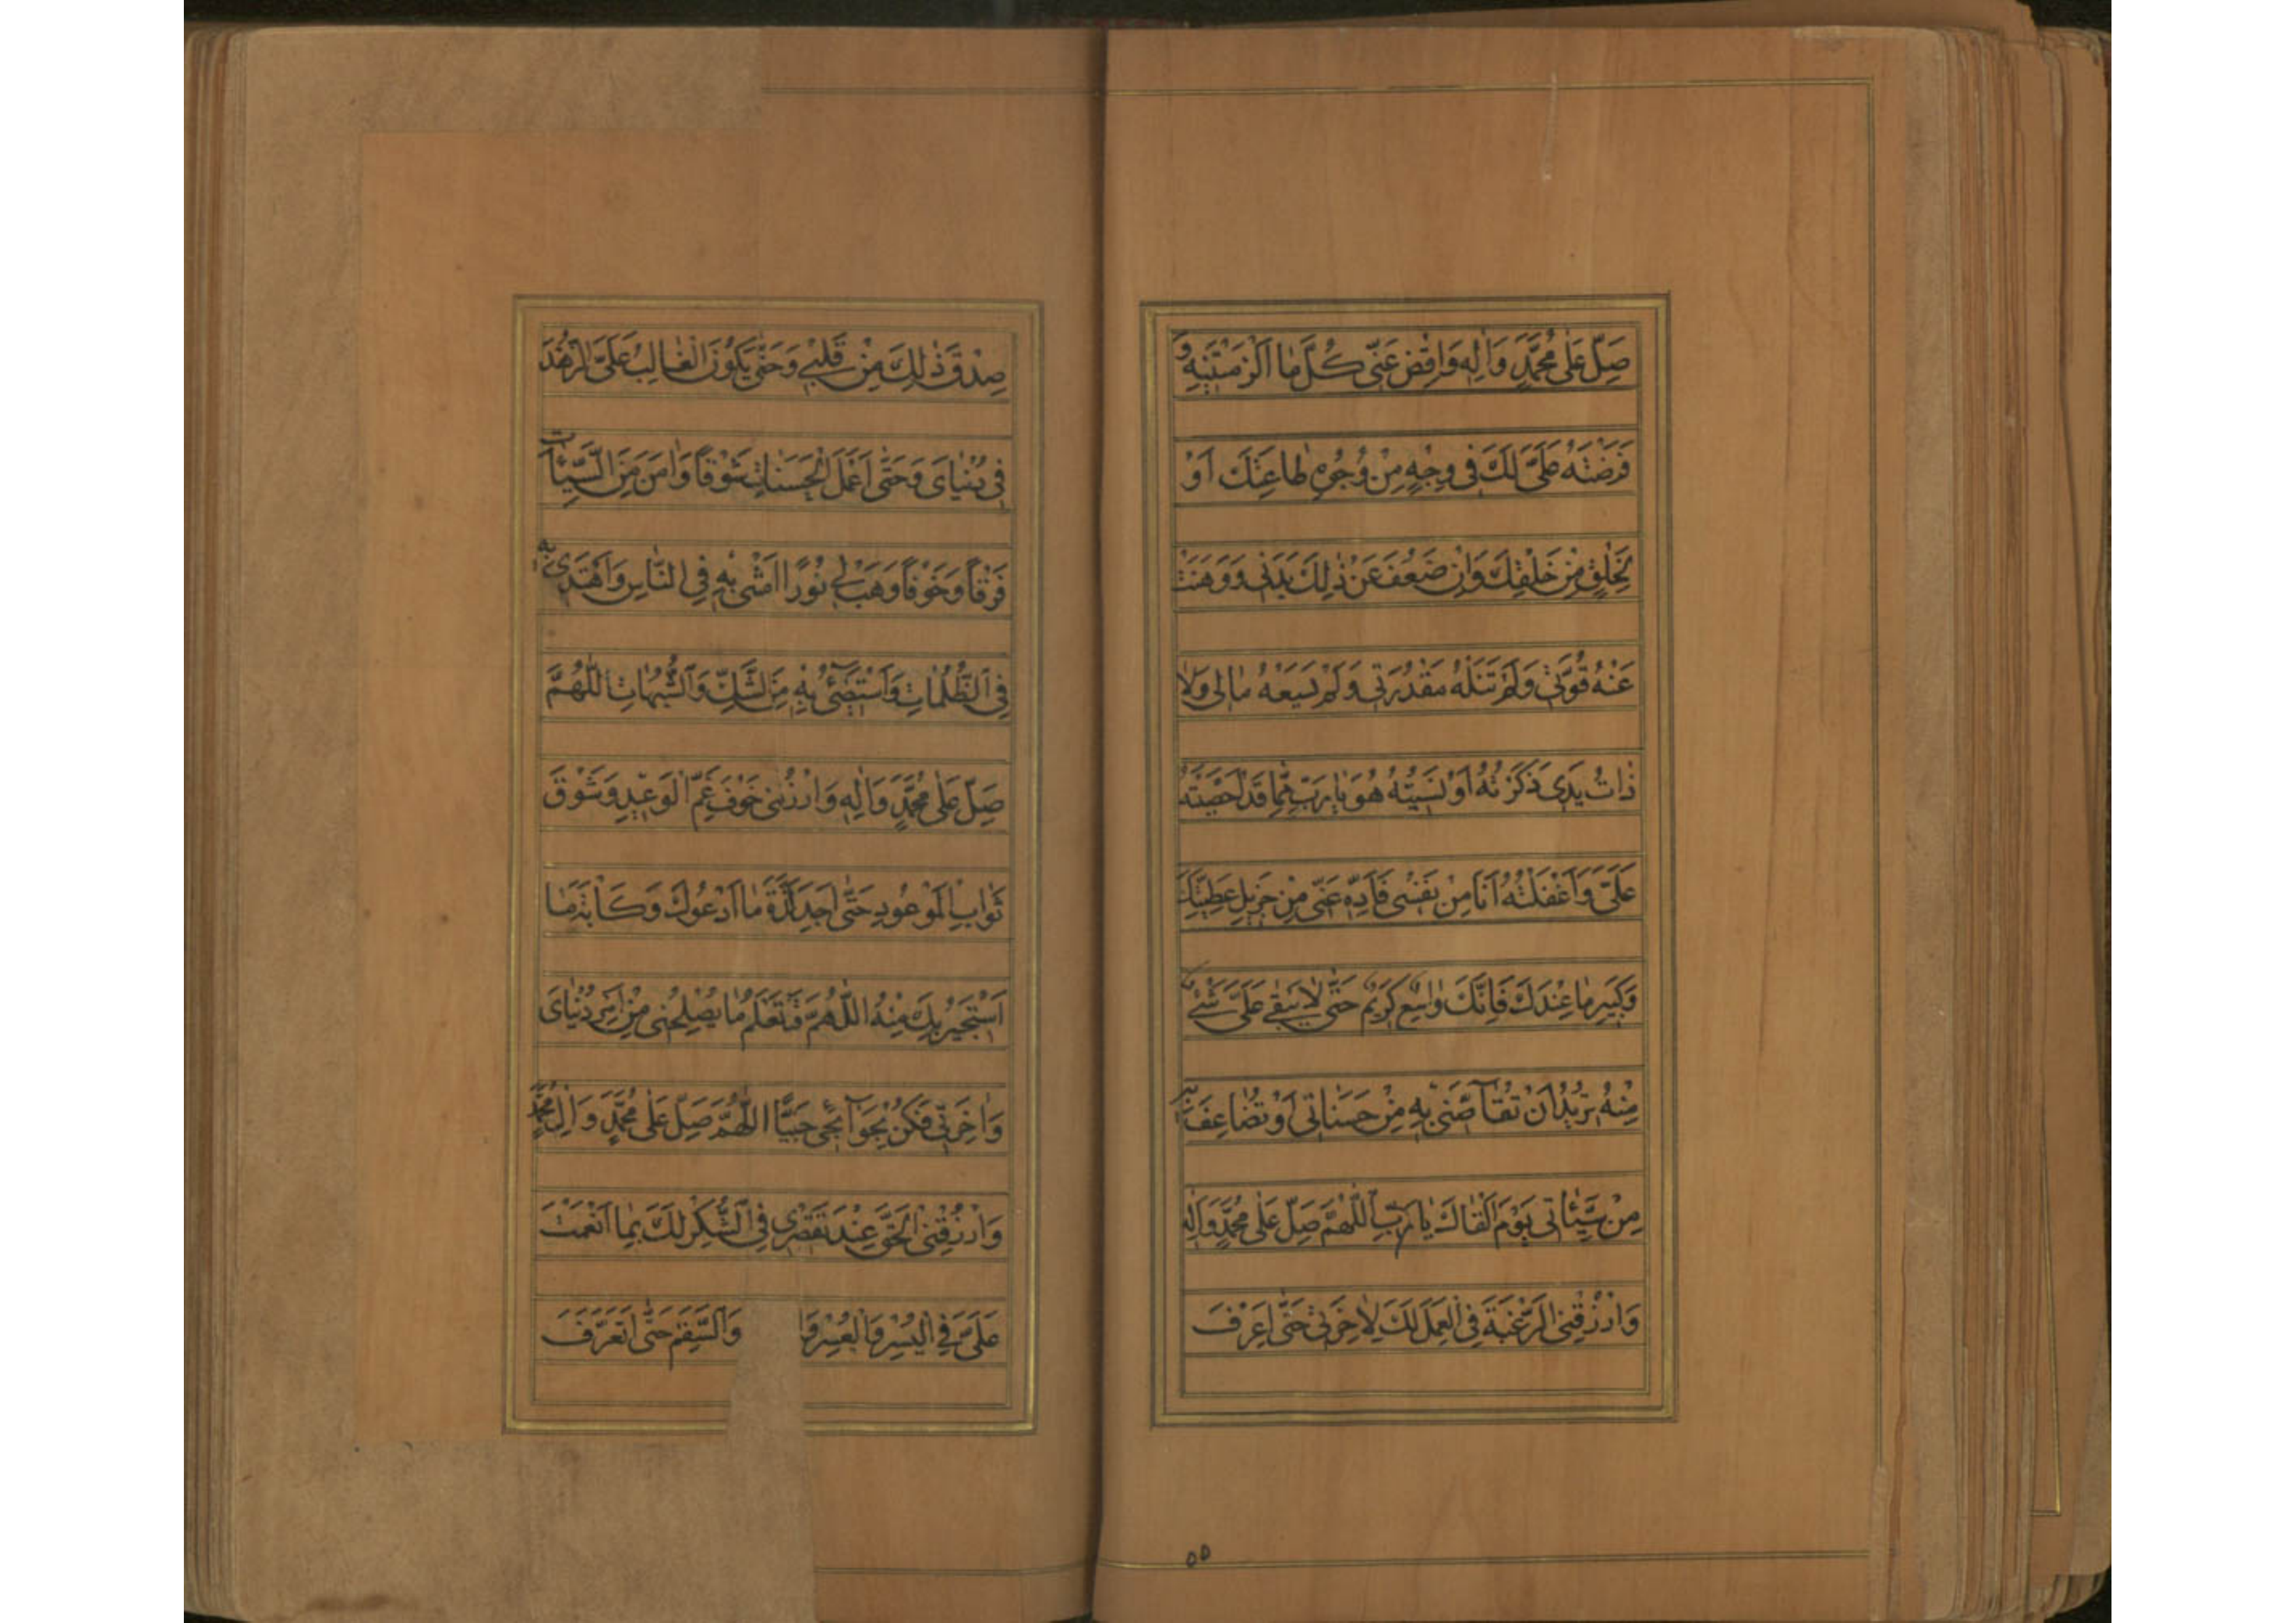 صَلِّ عَلٰى مُحَمَّدٍ وَاٰلِهِ وَاقْضِ عَنّى كُلَّ مٰا اَلْزَمْتَنيهِ وَ
فَرَضْتَهُ عَلَىَّ لَكَ فى وَجْهٍ مِنْ وُجُوهِ طٰاعَتِكَ اَوْ
لِخَلْقٍ مِنْ خَلْقِكَ وَاِنْ ضَعُفَ عَنْ ذٰلِكَ بَدَنى وَوَهَنَتْ
عَنْهُ قُوَّتى وَلَمْ تَنَلْهُ مَقْدُرَتى وَلَمْ يَسَعْهُ مٰالى وَلاٰ
ذٰاتُ يَدى ذَكَرْتُهُ اَوْ نَسيتُهُ هُوَ يٰا رَبِّ مِمّٰا قَدْ اَحْصَيْتَهُ
عَلَىَّ وَاَغْفَلْتُهُ اَنَا مِنْ نَفْسى فَاَدِّهِ عَنّى مِنْ جَزيلِ عَطِيَّتِكَ
وَكَبيرِ مٰا عِنْدَكَ فَاِنَّكَ وٰاسِعٌ كَريمٌ حَتّٰى لاٰ يَبْقٰى عَلَىَّ شَىْءٌ
مِنْهُ تُريدُ اَنْ تُقٰاصَّنى بِهِ مِنْ حَسَنٰاتى اَوْ تُضٰاعِفَ بِهِ
مِنْ سَيِّئٰاتى يَوْمَ اَلْقٰاكَ يٰا رَبِّ اَللّٰهُمَّ صَلِّ عَلٰى مُحَمَّدٍ وَاٰلِهِ
وَارْزُقْنِى الرَّغْبَةَ فِى الْعَمَلِ لَكَ لِاٰخِرَتى حَتّٰى اَعْرِفَ
٥٥
صِدْقَ ذٰلِكَ مِنْ قَلْبى وَحَتّٰى يَكُونَ الْغٰالِبُ عَلَىَّ الزُّهْدَ
فى دُنْيٰاىَ وَحَتّٰى اَعْمَلَ الْحَسَنٰاتِ شَوْقاً وَاٰمَنَ مِنَ السَّيِّئٰاتِ
فَرَقاً وَخَوْفاً وَهَبْ لى نُوراً اَمْشى بِهِ فِى النّٰاسِ وَاَهْتَدى بِهِ
فِى الظُّلُمٰاتِ وَاَسْتَضىٓءُ بِهِ مِنَ الشَّكِّ وَالشُّبُهٰاتِ اَللّٰهُمَّ
صَلِّ عَلٰى مُحَمَّدٍ وَاٰلِهِ وَارْزُقْنى خَوْفَ غَمِّ الْوَعيدِ وَشَوْقَ
ثَوٰابِ الْمَوْعُودِ حَتّٰى اَجِدَ لَذَّةَ مٰا اَدْعُوكَ وَكَاٰبَةَ مٰا
اَسْتَجيرُ بِكَ مِنْهُ اَللّٰهُمَّ قَدْ تَعْلَمُ مٰا يُصْلِحُنى مِنْ اَمْرِ دُنْيٰاىَ
وَاٰخِرَتى فَكُنْ بِحَوٰآئِجى حَفِيًّا اَللّٰهُمَّ صَلِّ عَلٰى مُحَمَّدٍ وَاٰلِ مُحَمَّدٍ
وَارْزُقْنِى الْحَقَّ عِنْدَ تَقْصيرى فِى الشُّكْرِ لَكَ بِمٰا اَنْعَمْتَ
عَلَىَّ فِى الْيُسْرِ وَالْعُسْرِ وَالسَّقَمِ حَتّٰى اَتَعَرَّفَ